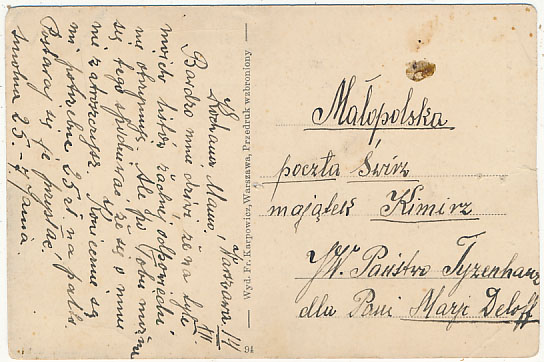 Warszawa
Kochana Mamo,
Bardzo mnie dziwi że na tyle
moich listów żadnej odpowiedzi
nie otrzymuję. Ale po Tobie można
się tego spodziewać że się o mnie
nie zatroszczysz. Koniecznie są
mi potrzebne 25 zł na palto.
Postaraj się je przysłać.
Jania.
Smolna 25-7
Wyd. Fr. Karpowicz, Warszawa, Przedruk wzbroniony
94
Małopolska
poczta Świrz
majątek Kimirz
JW. Państwo Tyzenhauz
dla Pani Marji Deloff